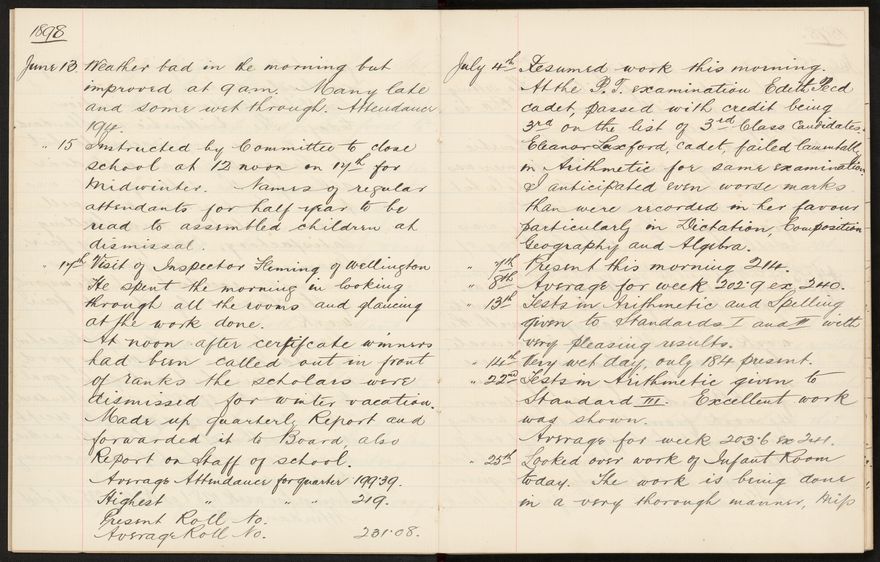 1898
June 13 Weather bad in the morning but
improved at 9 am. Many late
and some wet through. Attendance
194.
" 15 Instructed by Committee to close
school at 12 noon on 17th for
Midwinter. Names of regular
attendants for half year to be
read to assembled children at
dismissal.
" 17th Visit of Inspector Fleming of Wellington
He spent the morning in looking
through all the rooms and glancing
at the work done.
At noon after certificate winners
had been called out in front
of ranks the scholars were
dismissed for winter vacation.
Made up quarterly Report and
forwarded it to Board, also
Report on Staff of school.
Average Attendance for quarter 199.39.
Highest " " " 219.
Present Roll No.
Average Roll No. 231.08.
July 4th Resumed work this morning.
At the P.T. examination Edith
cadet, passed with credit being
3rd on the list of 3rd Class Candidates.
Eleanor Luxford, cadet, failed lamentably
in Arithmetic for same examination.
I anticipated even worse marks
than were recorded in her favour
particularly in Dictation, Composition
Geography and Algebra.
" 7th Present this morning 214.
" 8th Average for week 202.9 ex 240.
" 13th Tests in Arithmetic and Spelling
given to Standards I and II with
very pleasing results.
" 14th Very wet day, only 184 present.
" 22nd Tests in Arithmetic given to
Standard III. Excellent work
was shown.
Average for week 203.6 ex 241.
" 25th Looked over work of Infant Room
today. The work is being done
in a very thorough manner, Miss